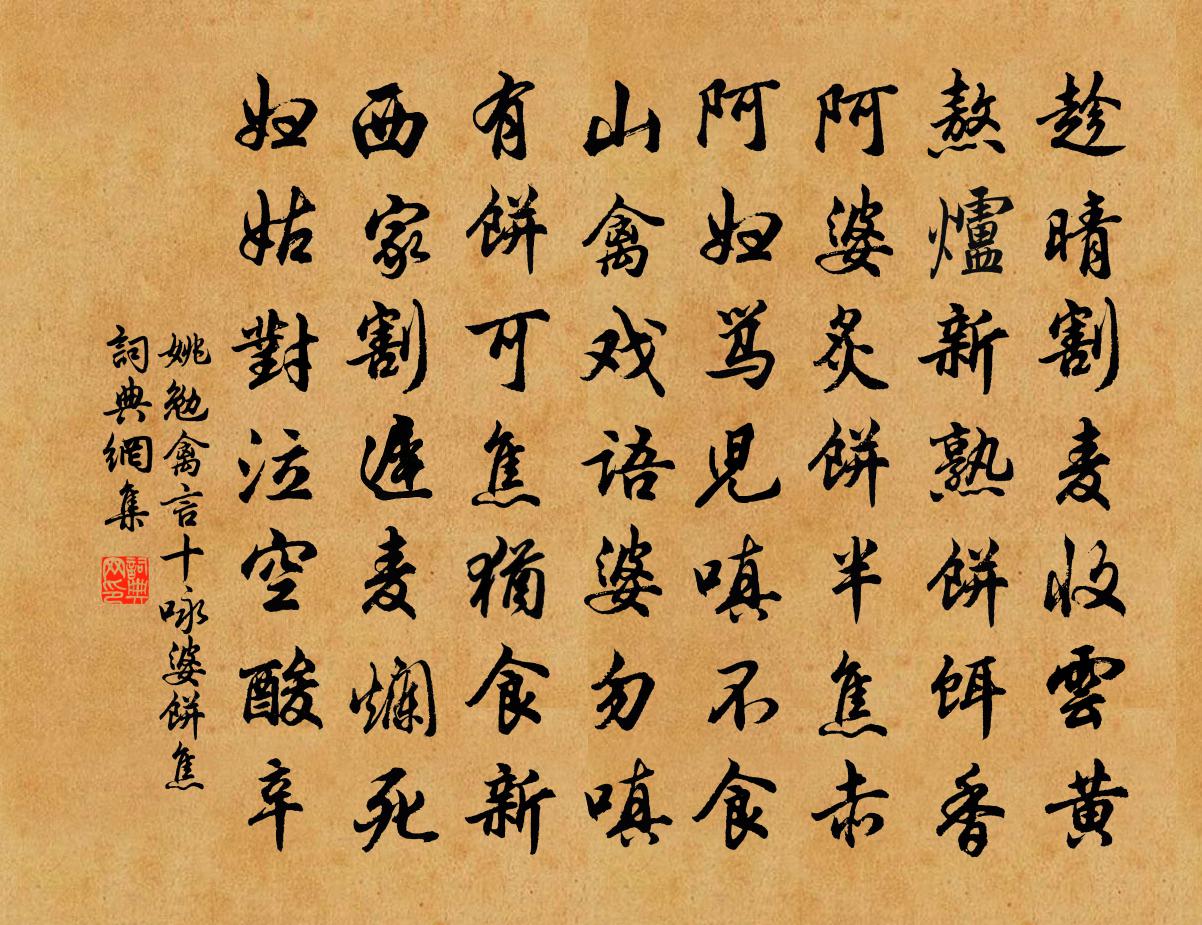 趁晴割麦收雲黄
熬爐新熟餅餌香
阿婆炙餅半焦赤
阿妇骂児嗔不食
山禽戏语婆勿嗔
有餅可焦猶食新
西家割遲麦爛死
妇姑對泣空酸辛
姚勉禽言十咏婆餅焦
詞典網集
詞典网印